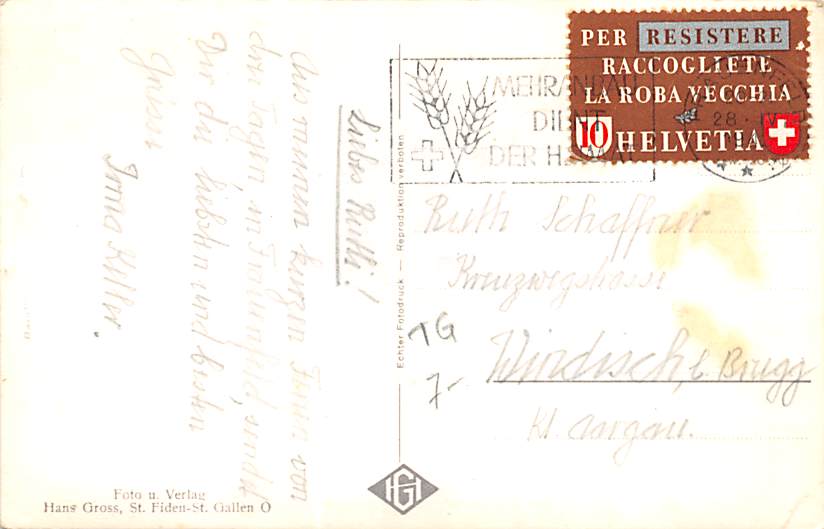 Liebes Rutli!
Aus meinen kurzen Ferien von
drei Tagen in Frauenfeld, sendet
Dir die liebsten und besten
Grüsse
Irma Keller.
Foto u. Verlag
Hans Gross, St. Fiden-St. Gallen O
Echter Fotodruck — Reproduktion verboten
HG
PER RESISTERE
RACCOGLIETE
LA ROBA VECCHIA
10 HELVETIA
MEHRANBAU
DIENT
DER HEIMAT
28. IV
Ruth Schaffner
Kreuzwegstrasse
Windisch, b. Brugg
Kt. Aargau.
TG
7-